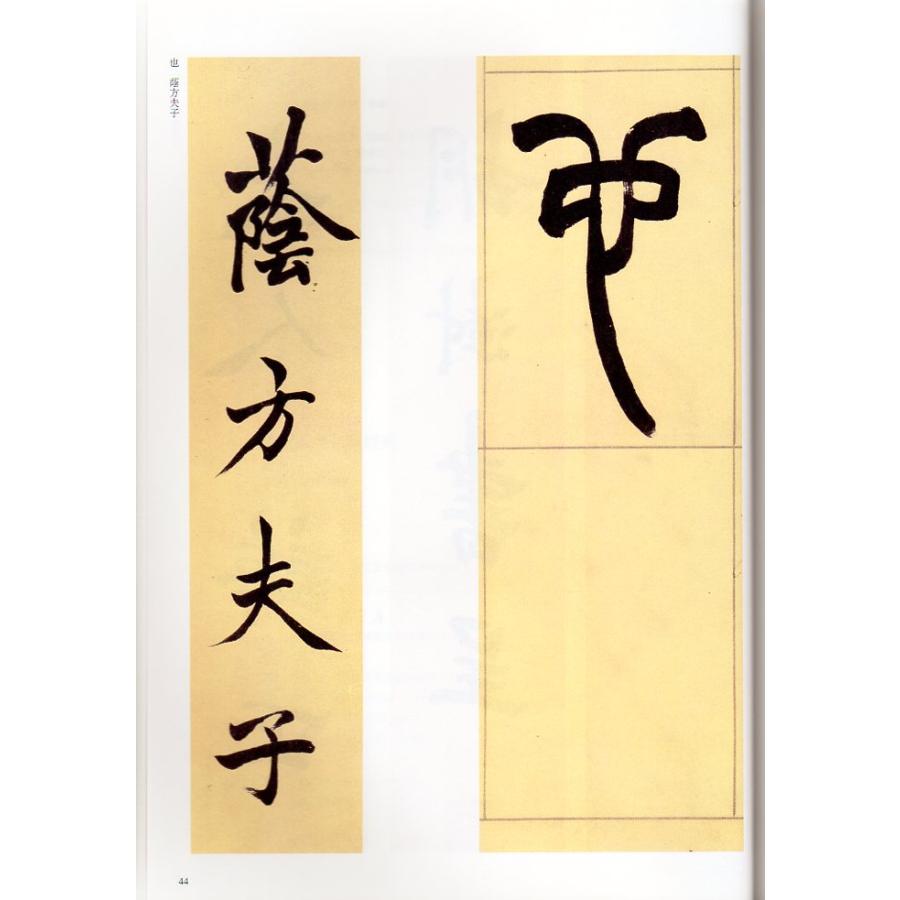 也
蔭方夫子
也　蔭方夫子
44